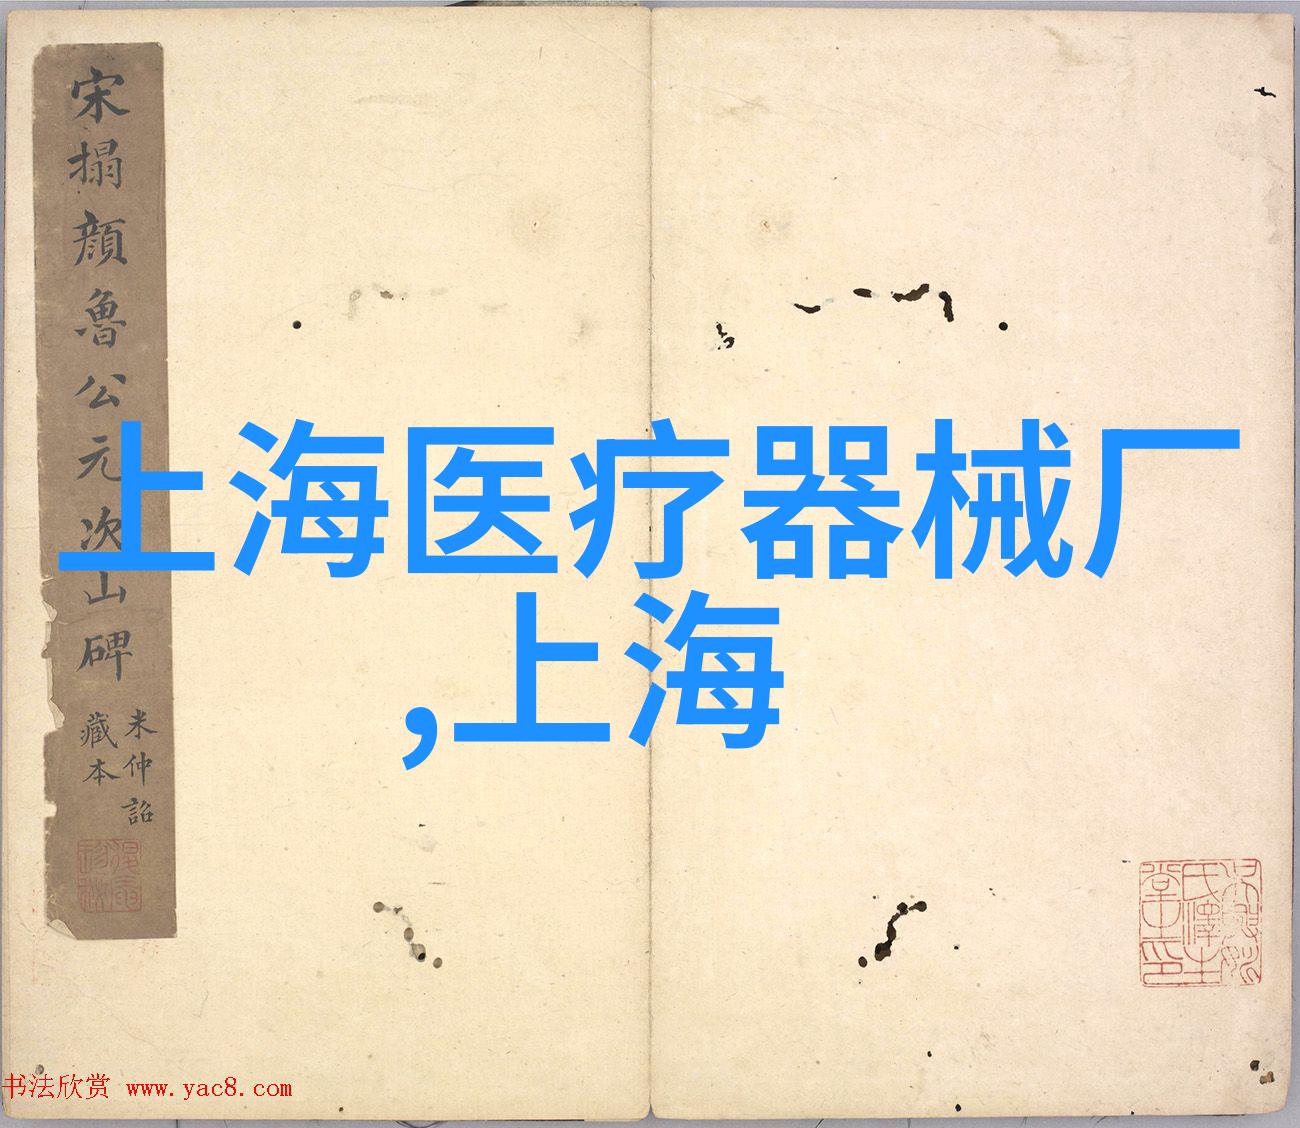 宋搨顔魯公元次山碑
米仲詔
藏本
上海医疗器械厂
,上海
书法欣赏 www.yac8.com